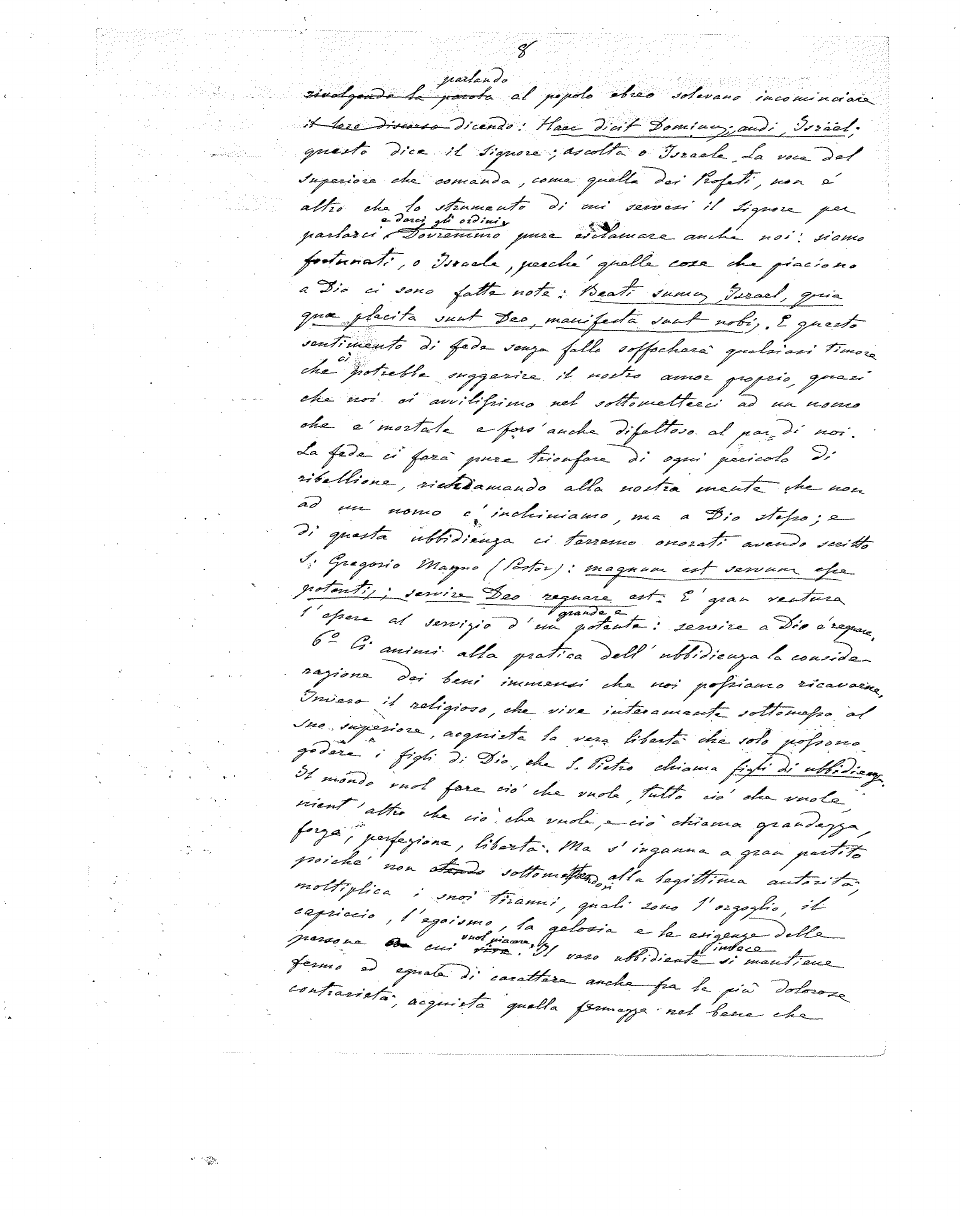 8
parlando
rivolgendo la parola al popolo ebreo solevano incominciare
il loro discorso dicendo: Haec dicit Dominus; audi, Israël;
questo dice il Signore; ascolta o Israele. La voce del
superiore che comanda, come quella dei Profeti, non è
altro che lo strumento di cui servesi il Signore per
e darci gli ordini
parlarci. Dovremmo pure esclamare anche noi: siamo
fortunati, o Israele, perché quelle cose che piaciono
a Dio ci sono fatte note: Beati sumus, Israel, quia
quæ placita sunt Deo, manifesta sunt nobis. E questo
sentimento di fede senza fallo soffocherà qualsiasi timore
ci
che potrebbe suggerire il nostro amor proprio, quasi
che noi ci avvilissimo nel sottometterci ad un uomo
che è mortale e fors'anche difettoso al par di noi.
La fede ci farà pure trionfare di ogni pericolo di
ribellione, richiamando alla nostra mente che non
ad un uomo c'inchiniamo, ma a Dio stesso; e
di questa ubbidienza ci terremo onorati avendo scritto
S. Gregorio Magno (Pastor): magnum est servum esse
potentis; servire Deo regnare est. E' gran ventura
grande e
l'essere al servizio d'un potente: servire a Dio è regnare.
6º Ci animi alla pratica dell'ubbidienza la conside-
razione dei beni immensi che noi possiamo ricavarne.
Invero il religioso, che vive interamente sottomesso al
suo superiore, acquista la vera libertà che solo possono
godere i figli di Dio, che S. Pietro chiama figli di ubbidienza.
Il mondo vuol fare ciò che vuole, tutto ciò che vuole,
nient'altro che ciò che vuole, e ciò chiama grandezza,
forza, perfezione, libertà. Ma s'inganna a gran partito
poiché non sottomettendosi alla legittima autorità,
moltiplica i suoi tiranni, quali sono l'orgoglio, il
capriccio, l'egoismo, la gelosia e le esigenze delle
vuol piacere invece
persone cui. Il vero ubbidiente si mantiene
fermo ed eguale di carattere anche fra le più dolorose
contrarietà, acquista quella fermezza nel bene che